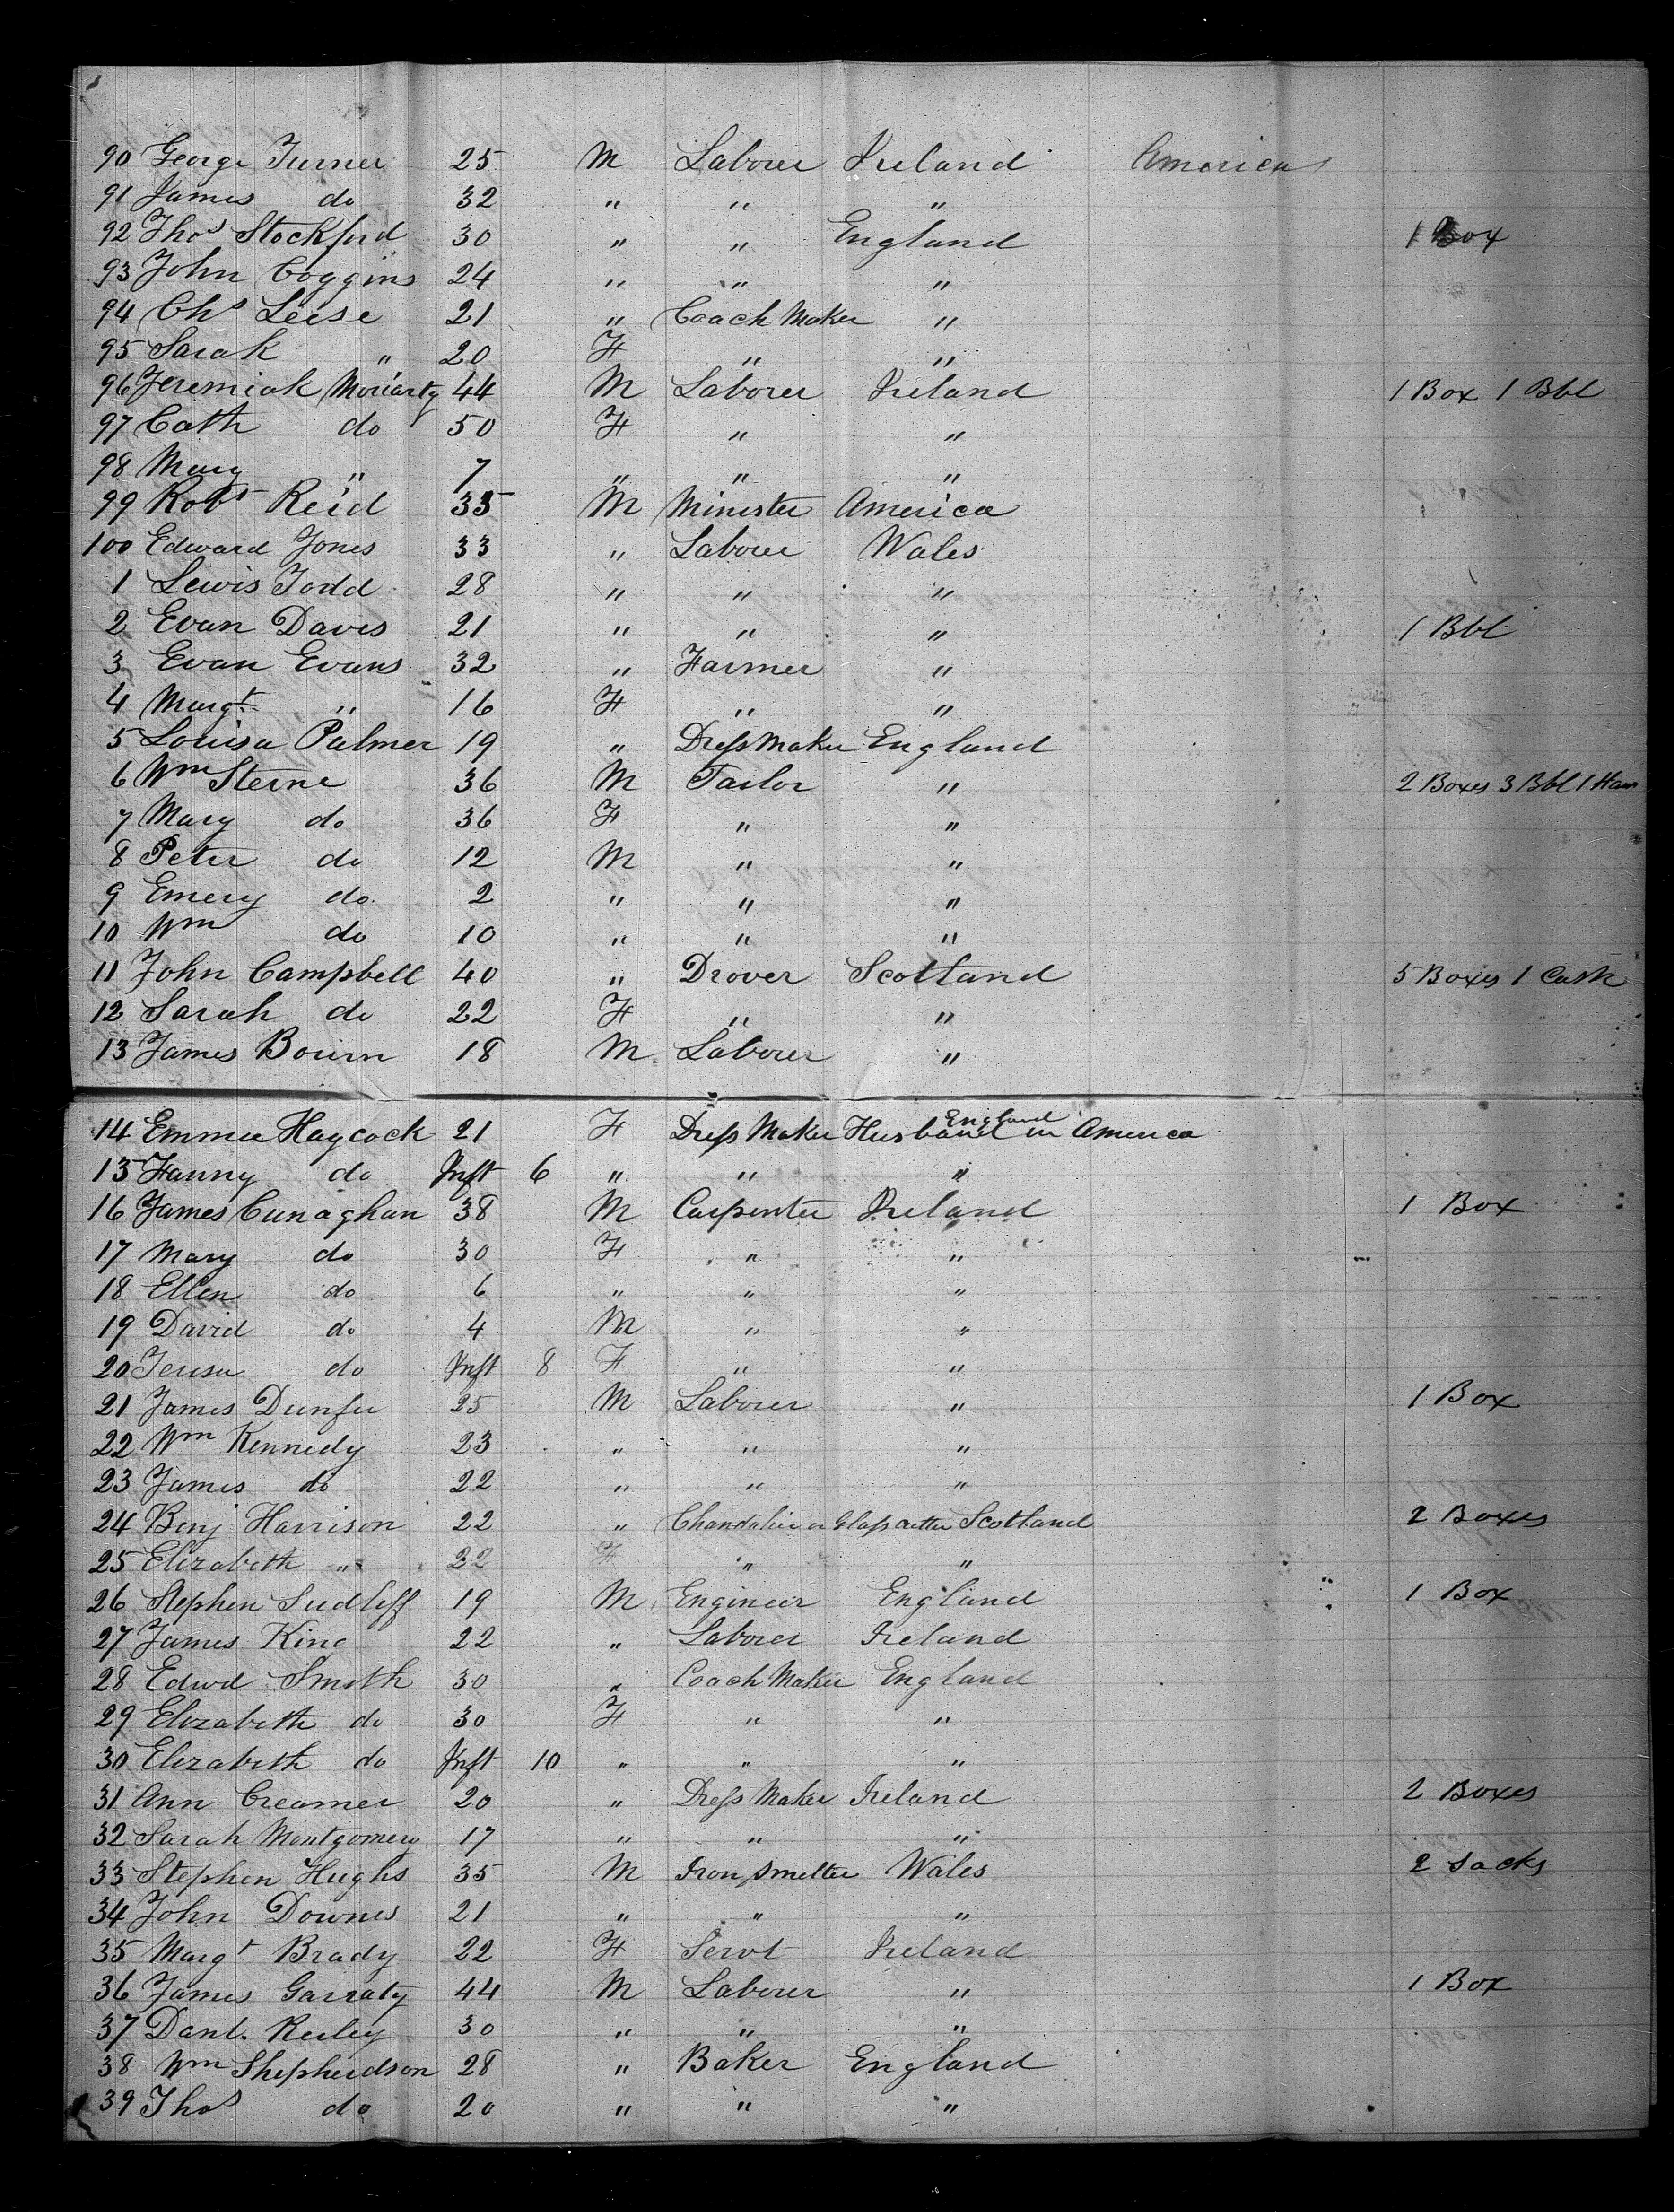 90 George Turner 25 M Laborer Ireland America
91 James do 32 " " "
92 Thos Stockford 30 " " England 1 Box
93 John Coggins 24 " " "
94 Chs Leese 21 " Coach Maker "
95 Sarah " 20 F " "
96 Jeremiah Moriarty 44 M Laborer Ireland 1 Box 1 Bbl
97 Cath do 50 F " "
98 Mary " 7 " " "
99 Robt Reid 35 M Minister America
100 Edward Jones 33 " Laborer Wales
1 Lewis Todd 28 " " "
2 Evan Davis 21 " " " 1 Bbl
3 Evan Evans 32 " Farmer "
4 Margt " 16 F " "
5 Louisa Palmer 19 " Dress Maker England
6 Wm Sterne 36 M Tailor " 2 Boxes 3 Bbl 1 Ham
7 Mary do 36 F " "
8 Peter do 12 M " "
9 Emery do 2 " " "
10 Wm do 10 " " "
11 John Campbell 40 " Drover Scotland 5 Boxes 1 Cask
12 Sarah do 22 F " "
13 James Bourn 18 M Laborer "
14 Emma Haycock 21 F Dress Maker England Husband in America
15 Fanny do Inft 6 " " "
16 James Cunaghan 38 M Carpenter Ireland 1 Box
17 Mary do 30 F " "
18 Ellen do 6 " " "
19 David do 4 M " "
20 Teresa do Inft 8 F " "
21 James Dunfer 25 M Laborer " 1 Box
22 Wm Kennedy 23 " " "
23 James do 22 " " "
24 Benj Harrison 22 " Chandelier or Glass Cutter Scotland 2 Boxes
25 Elizabeth " 22 F " "
26 Stephen Sudliff 19 M Engineer England 1 Box
27 James King 22 " Laborer Ireland
28 Edwd Smith 30 " Coach Maker England
29 Elizabeth do 30 F " "
30 Elizabeth do Inft 10 " " "
31 Ann Creamer 20 " Dress Maker Ireland 2 Boxes
32 Sarah Montgomery 17 " " "
33 Stephen Hughs 35 M Iron Smelter Wales 2 Sacks
34 John Downes 21 " " "
35 Margt Brady 22 F Servt Ireland
36 James Garraty 44 M Laborer " 1 Box
37 Danl. Reiley 30 " " "
38 Wm Shepherdson 28 " Baker England
39 Thos do 20 " " "